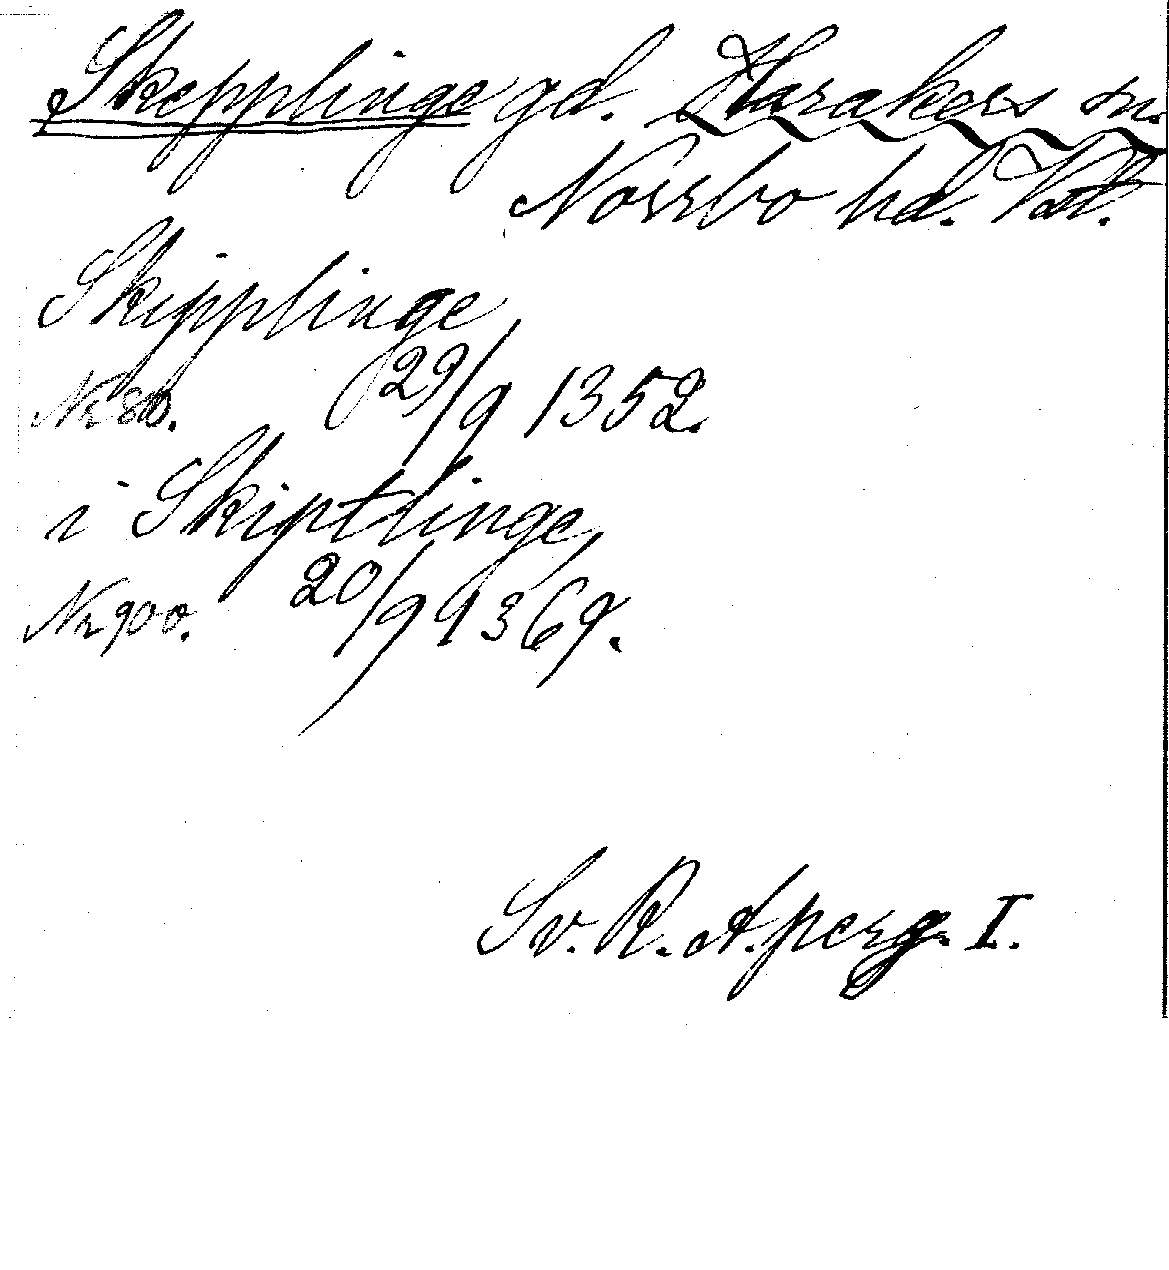 Skepplinge gd. Harakers sn.
Norrbo hd. Vstl.
Skipplinge
Nr 80. 29/9 1352.
i Skiptlinge
Nr 900. 20/9 1369.
Sv. R. A. perg. I.